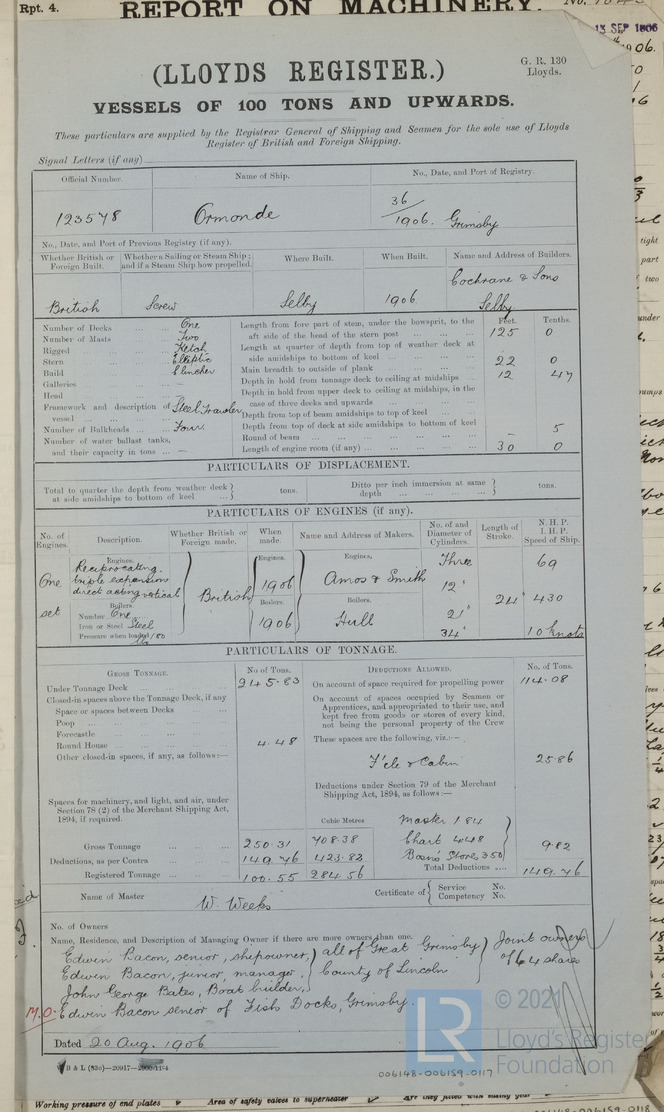 Rpt. 4.
REPORT ON MACHINERY.
No.
13 SEP 1906
(LLOYDS REGISTER.)
G. R. 130
Lloyds.
VESSELS OF 100 TONS AND UPWARDS.
These particulars are supplied by the Registrar General of Shipping and Seamen for the sole use of Lloyds
Register of British and Foreign Shipping.
Signal Letters (if any)
Official Number. Name of Ship. No., Date, and Port of Registry.
123578 Ormonde 36/1906. Grimsby
No., Date, and Port of Previous Registry (if any).
Whether British or Foreign Built. Whether a Sailing or Steam Ship; and if a Steam Ship how propelled. Where Built. When Built. Name and Address of Builders.
British Screw Selby 1906 Cochrane & Sons Selby
Feet. Tenths.
Number of Decks ... One
Number of Masts ... Two
Rigged ... Ketch
Stern ... Elliptic
Build ... Clincher
Galleries ... —
Head ...
Framework and description of vessel ... Steel Trawler
Number of Bulkheads ... Four
Number of water ballast tanks, and their capacity in tons ... —
Length from fore part of stem, under the bowsprit, to the aft side of the head of the stern post ... 125 0
Length at quarter of depth from top of weather deck at side amidships to bottom of keel ...
Main breadth to outside of plank ... 22 0
Depth in hold from tonnage deck to ceiling at midships ... 12 47
Depth in hold from upper deck to ceiling at midships, in the case of three decks and upwards ...
Depth from top of beam amidships to top of keel ...
Depth from top of deck at side amidships to bottom of keel
Round of beam ... — 5
Length of engine room (if any) ... 30 0
PARTICULARS OF DISPLACEMENT.
Total to quarter the depth from weather deck at side amidships to bottom of keel ... } tons. Ditto per inch immersion at same depth ... } tons.
PARTICULARS OF ENGINES (if any).
No. of Engines. Description. Whether British or Foreign made. When made. Name and Address of Makers. No. of and Diameter of Cylinders. Length of Stroke. N. H. P. I. H. P. Speed of Ship.
One set
Engines.
Reciprocating.
triple expansion
direct acting vertical
Boilers.
Number One
Iron or Steel Steel
Pressure when loaded 180 lbs
British
Engines. 1906
Boilers. 1906
Engines. Amos & Smith
Boilers. Hull
Three
12"
21"
34"
24"
69
430
10 knots
PARTICULARS OF TONNAGE.
GROSS TONNAGE. No of Tons. DEDUCTIONS ALLOWED. No. of Tons.
Under Tonnage Deck ... 245.83
Closed-in spaces above the Tonnage Deck, if any
Space or spaces between Decks ...
Poop ...
Forecastle ...
Round House ... 4.48
Other closed-in spaces, if any, as follows:—
Spaces for machinery, and light, and air, under
Section 78 (2) of the Merchant Shipping Act,
1894, if required.
On account of space required for propelling power 114.08
On account of spaces occupied by Seamen or
Apprentices, and appropriated to their use, and
kept free from goods or stores of every kind,
not being the personal property of the Crew
These spaces are the following, viz.:—
F'cle & Cabin 25.86
Deductions under Section 79 of the Merchant
Shipping Act, 1894, as follows:—
Cubic Metres
Master 1.84
Chart 4.48
Bosn's Stores 3.50
9.82
Gross Tonnage ... 250.31 708.38
Deductions, as per Contra ... 149.76 423.82
Registered Tonnage ... 100.55 284.56
Total Deductions ... 149.76
Name of Master W. Weeks Certificate of { Service No. Competency No.
No. of Owners
Name, Residence, and Description of Managing Owner if there are more owners than one.
Edwin Bacon, senior, shipowner, } all of Great Grimsby } Joint owners
Edwin Bacon, junior, manager, County of Lincoln of 64 shares
John George Bates, Boat builder,
M.O. Edwin Bacon senior of Fish Docks, Grimsby.
Dated 20 Aug. 1906
© 2021
LR
Lloyd's Register
Foundation
006148-006159-0117
Working pressure of end plates
Area of safety valves to superheater
Are they fitted with easing gear